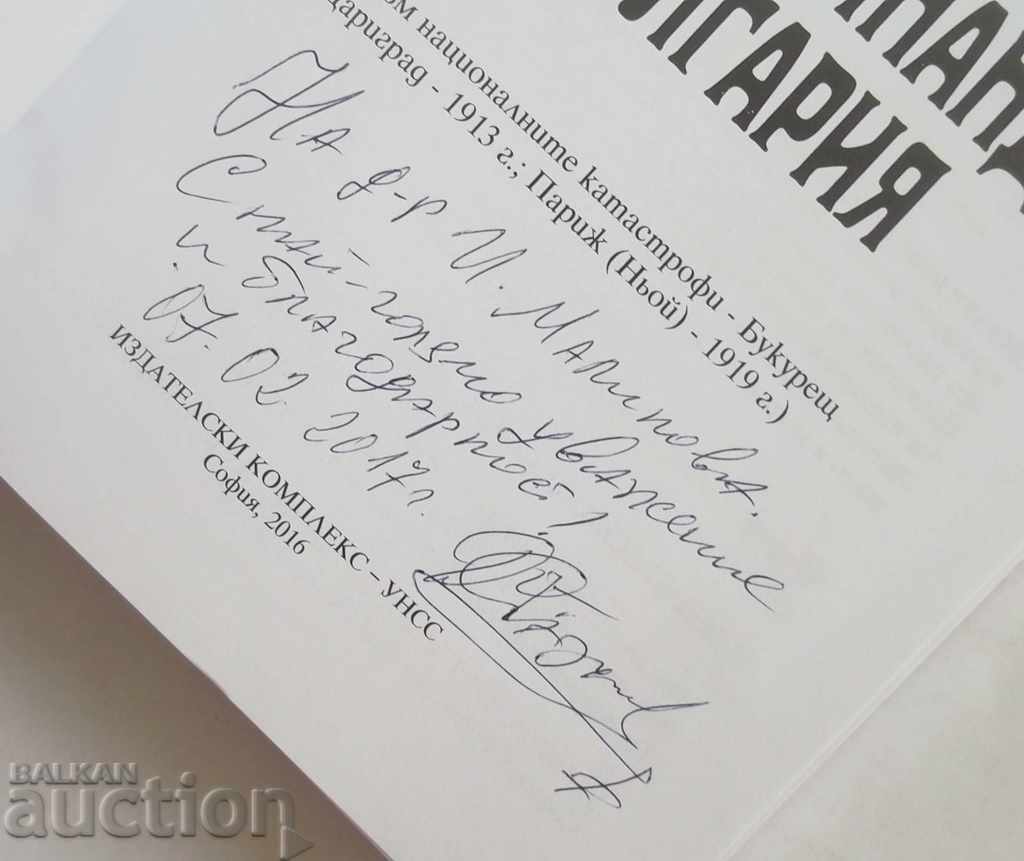 ЛГАРИЯ
националните катастрофи - Букурещ
Цариград - 1913 г.; Париж (Ньой) - 1919 г.)
На д-р И. Маринова,
С най-голямо уважение
и благодарност!
07. 02. 2017 г.
ИЗДАТЕЛСКИ КОМПЛЕКС – УНСС
София, 2016
BALKAN
auction